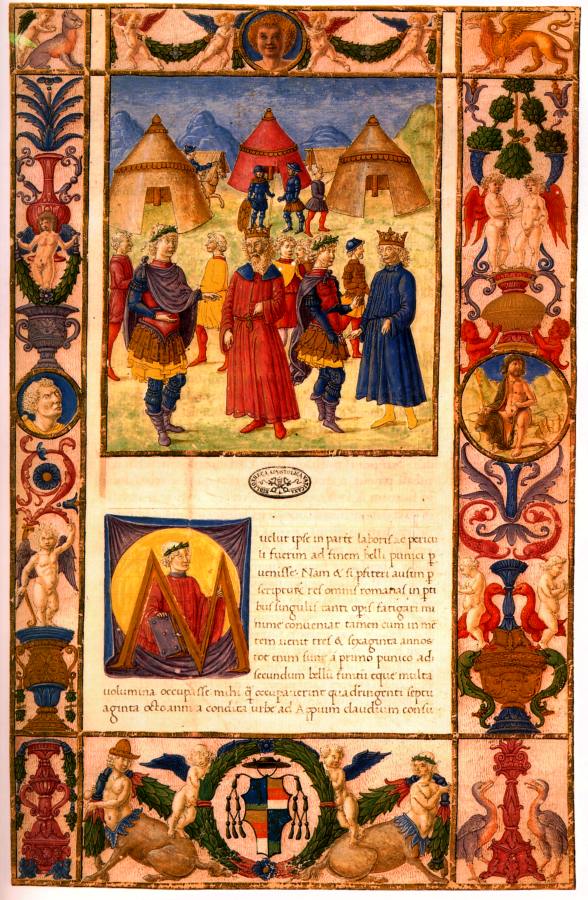 BIBLIOTHECA APOSTOLICA VATICANA
M
uelut ipse in parte laboris ac pericu
li fuerim ad finem belli punici p
uenisse. Nam & si pfiteri ausim p
scripturū res omnis romanas in pti
bus singulis tanti opis fatigari mi
nime conueniat tamen cum in mē
tem uenit tres & sexaginta annos
tot enim sunt a primo punico ad
secundum bellū finitū eque multa
uolumina occupasse mihi q̄ occupauerint quadringenti septu
aginta octo anni a condita urbe ad Appium claudium consu